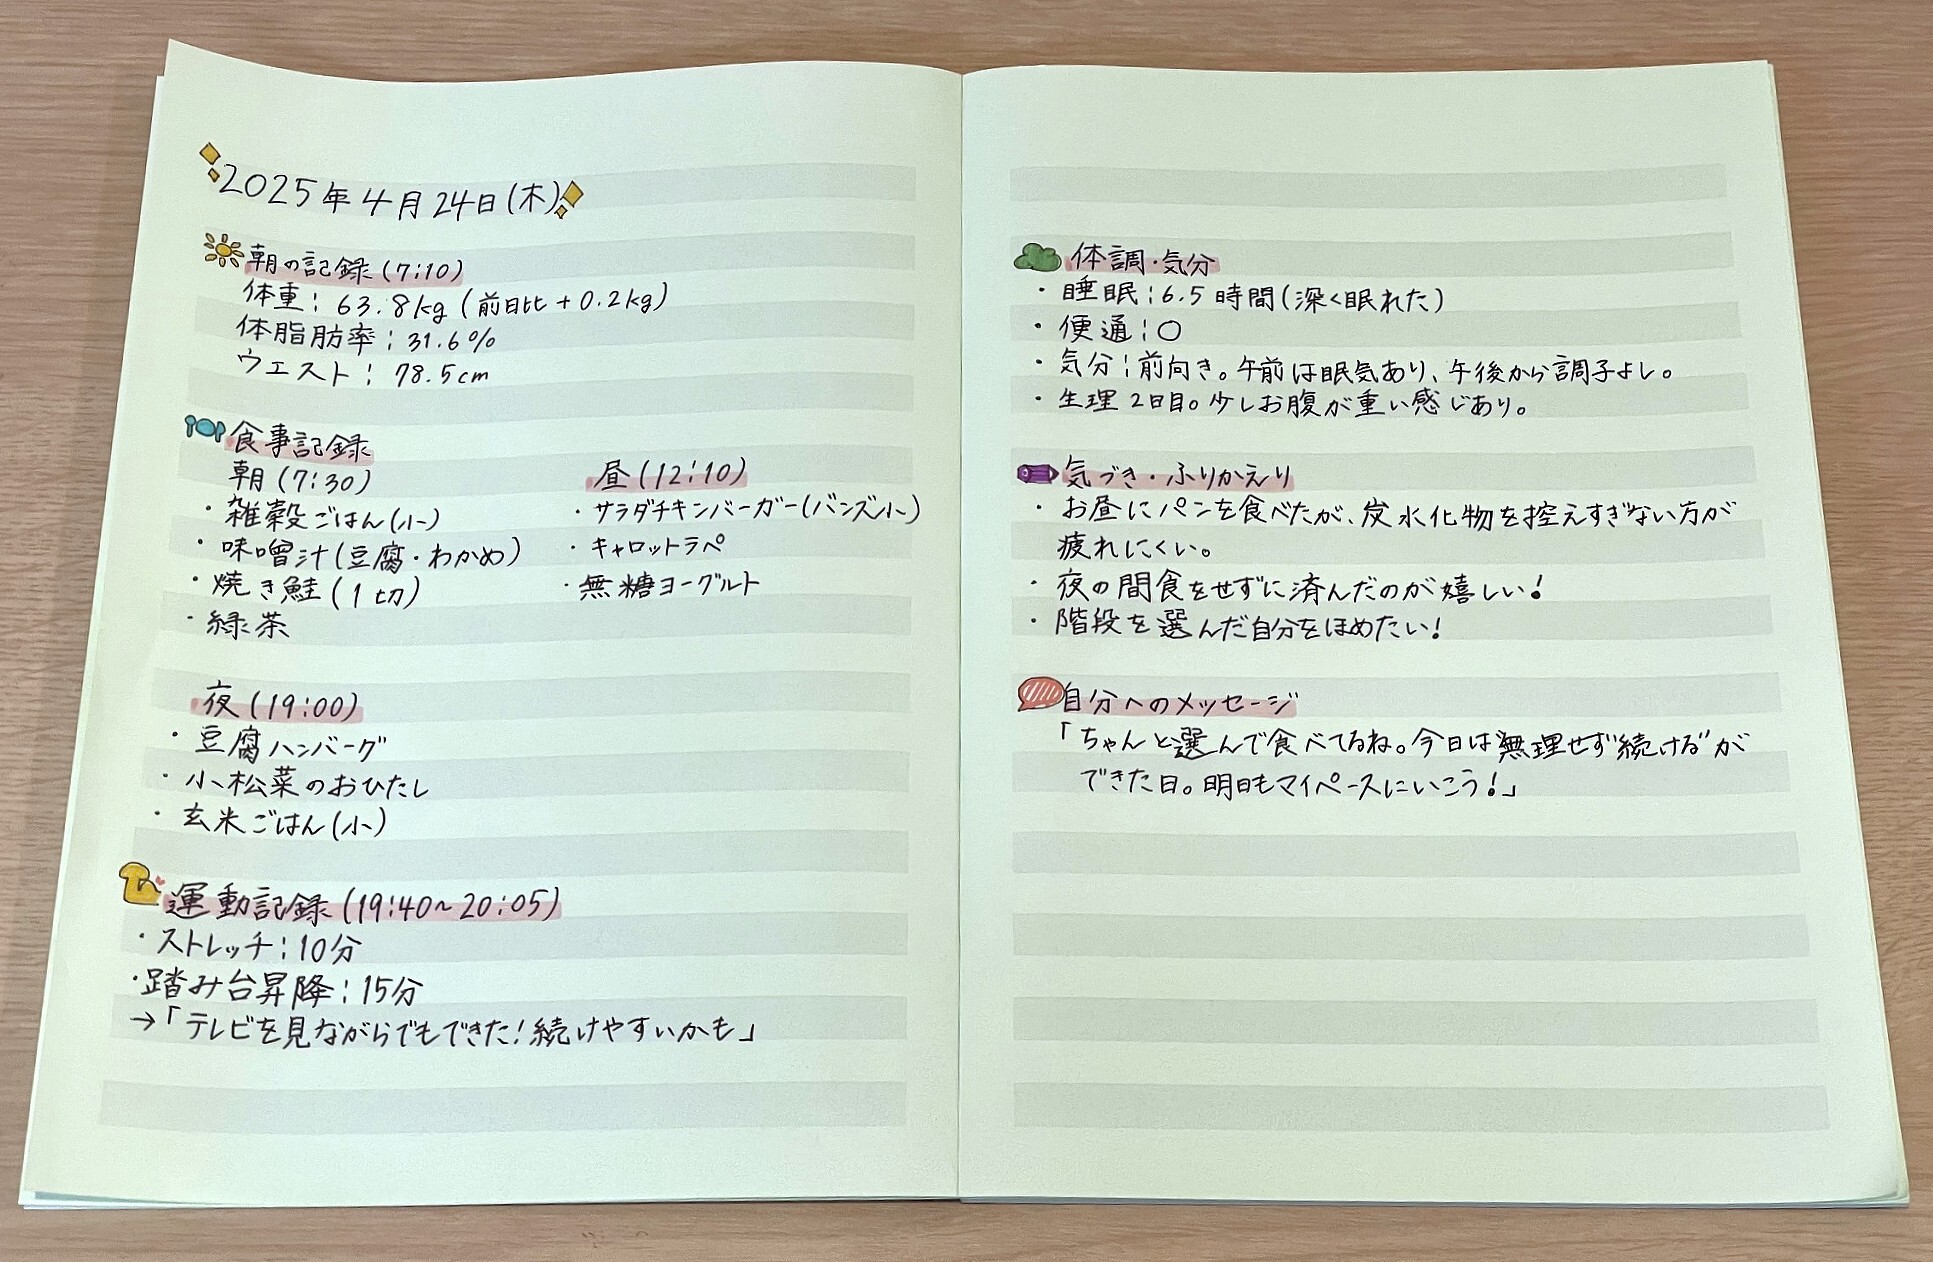 2025年4月24日(木)
朝の記録(7:10)
体重:63.8kg(前日比+0.2kg)
体脂肪率:31.6%
ウエスト:78.5cm
食事記録
朝(7:30)
・雑穀ごはん(小)
・味噌汁(豆腐・わかめ)
・焼き鮭(1切)
・緑茶
昼(12:10)
・サラダチキンバーガー(バンズ小)
・キャロットラペ
・無糖ヨーグルト
夜(19:00)
・豆腐ハンバーグ
・小松菜のおひたし
・玄米ごはん(小)
運動記録(19:40~20:05)
・ストレッチ:10分
・踏み台昇降:15分
→「テレビを見ながらでもできた!続けやすいかも」
体調・気分
・睡眠:6.5時間(深く眠れた)
・便通:○
・気分:前向き。午前は眠気あり、午後から調子よし。
・生理2日目。少しお腹が重い感じあり。
気づき・ふりかえり
・お昼にパンを食べたが、炭水化物を控えすぎない方が
疲れにくい。
・夜の間食をせずに済んだのが嬉しい!
・階段を選んだ自分をほめたい!
自分へのメッセージ
「ちゃんと選んで食べてるね。今日は"無理せず続ける"が
できた日。明日もマイペースにいこう!」